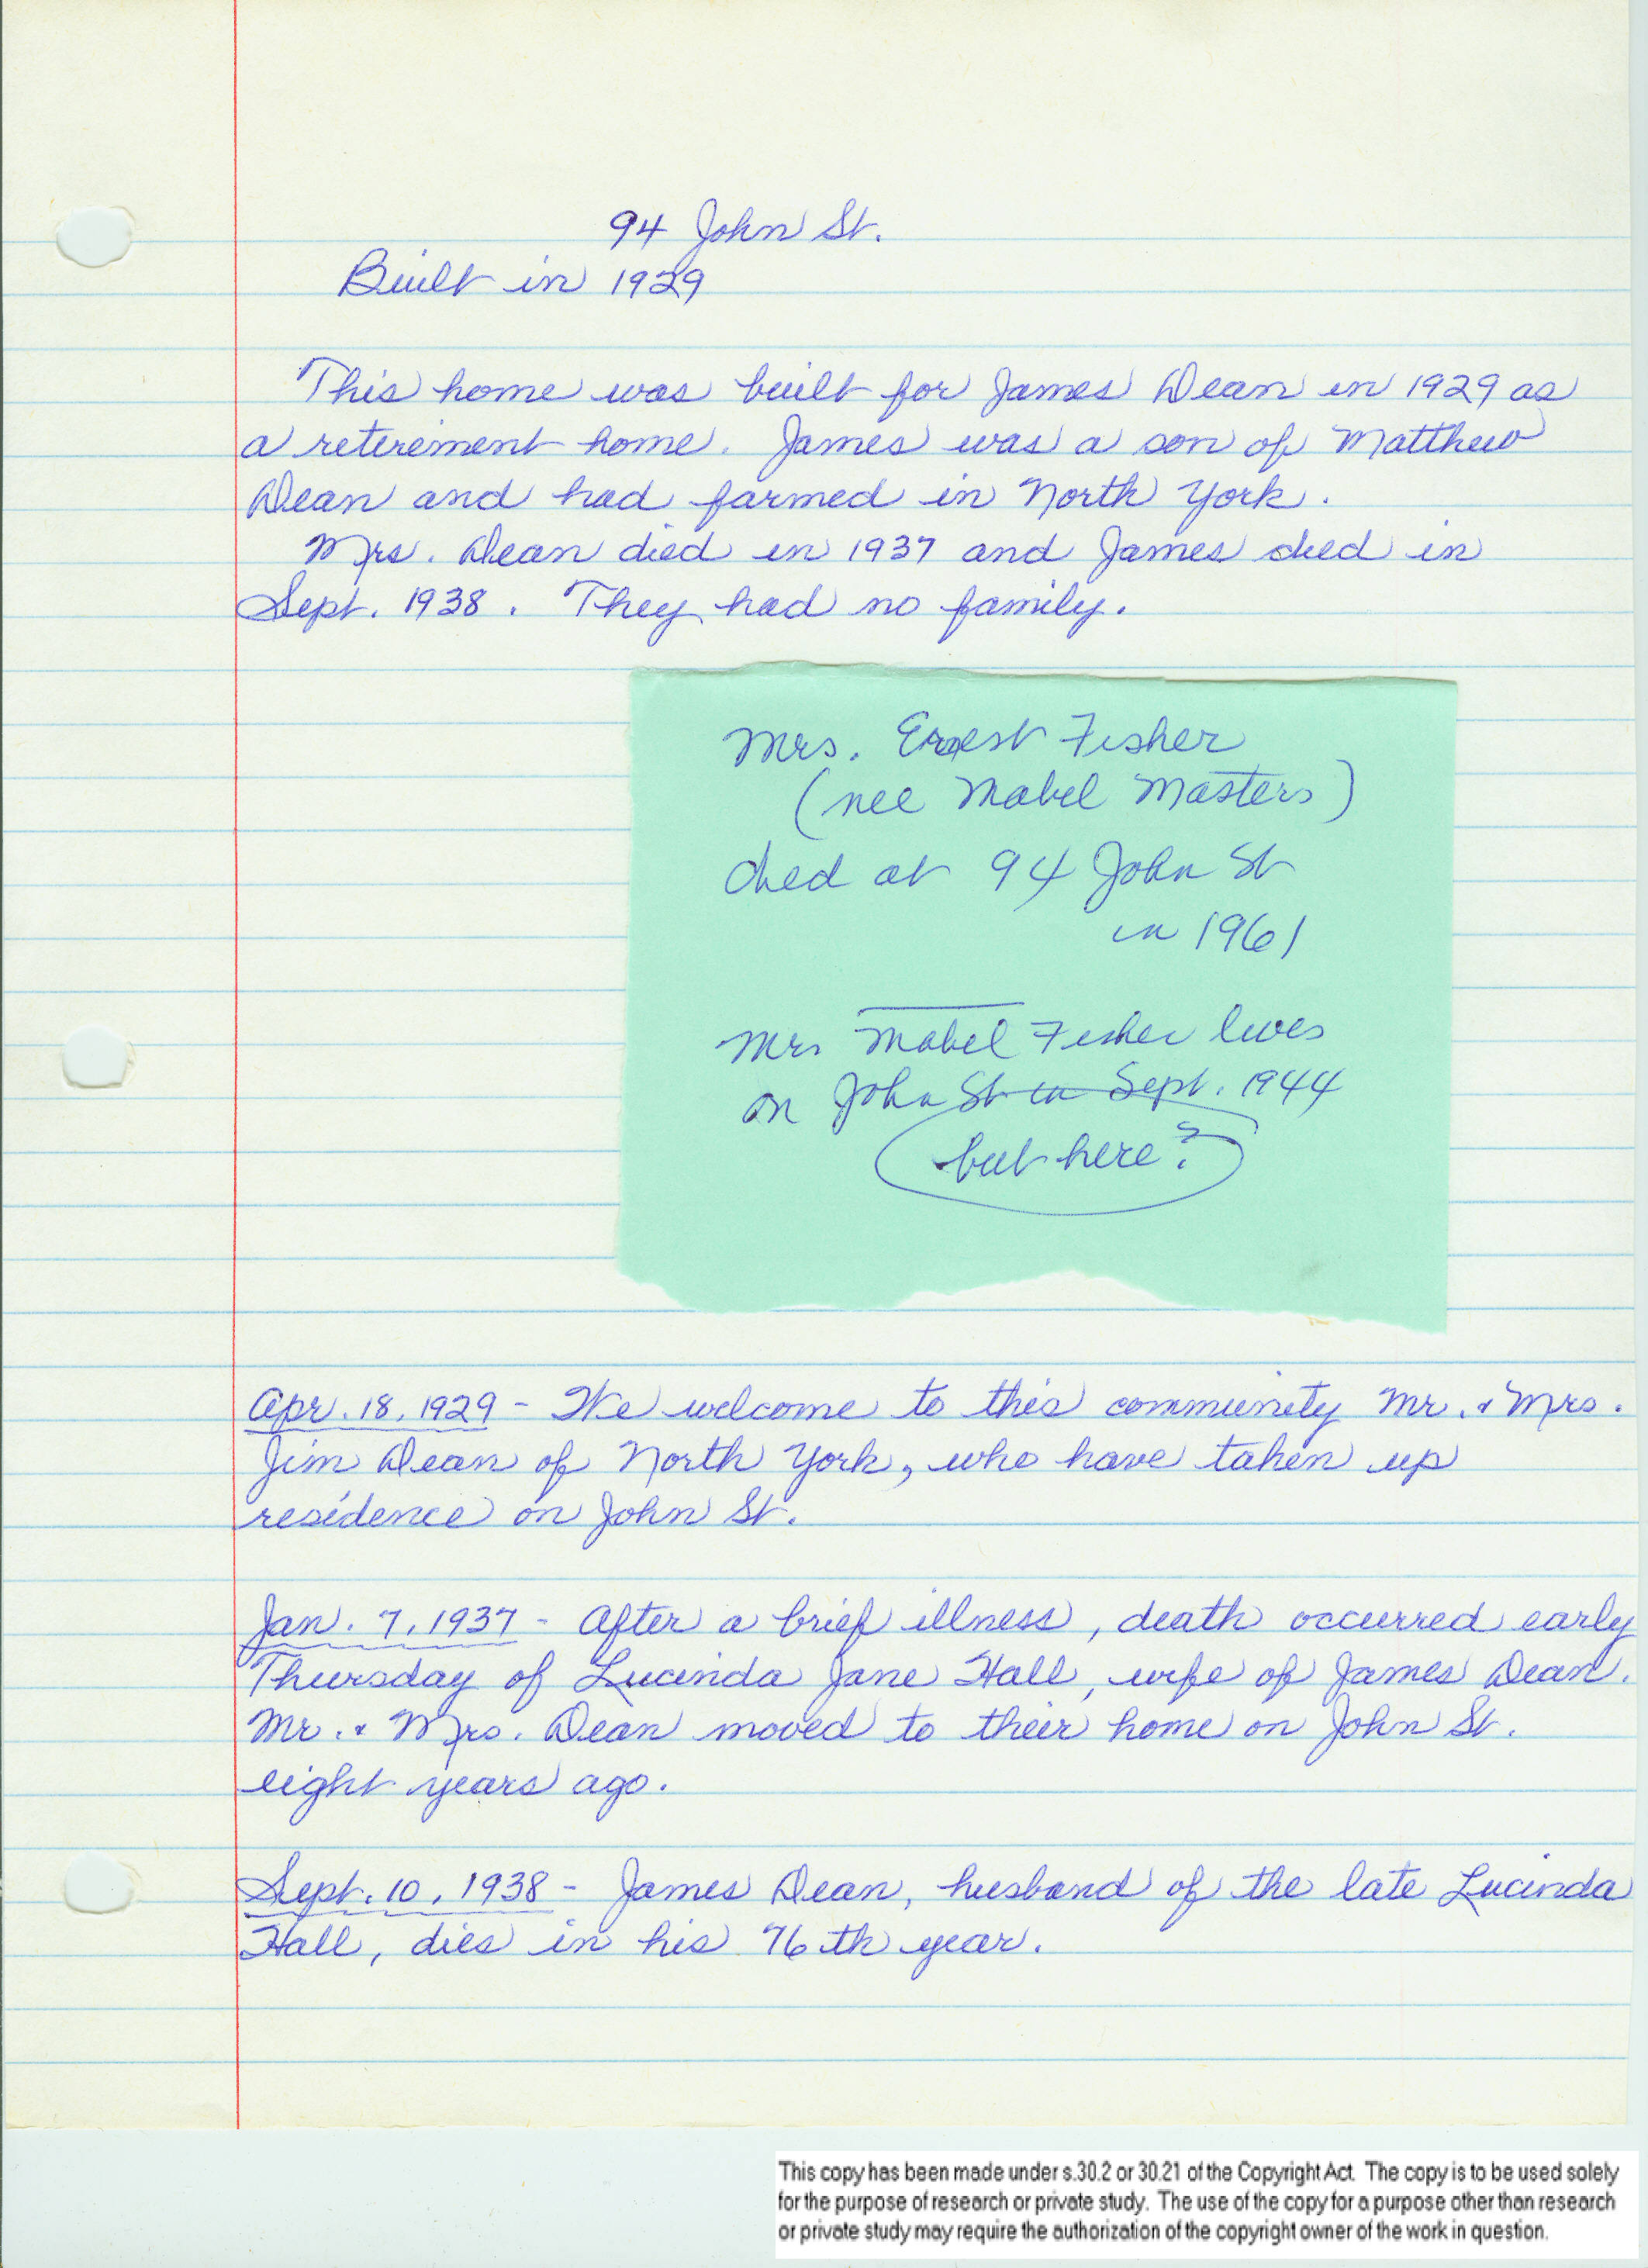 94 John St.
Built in 1929
This home was built for James Dean in 1929 as
a reterement home. James was a son of Matthew
Dean and had farmed in North York.
Mrs. Dean died in 1937 and James died in
Sept. 1938. They had no family.
Mrs. Ernest Fisher
(nee Mabel Masters)
died at 94 John St
in 1961
Mrs Mabel Fisher lives
on John St in Sept. 1944
but here?
Apr. 18, 1929 - We welcome to this community Mr. & Mrs.
Jim Dean of North York, who have taken up
residence on John St.
Jan. 7, 1937 - After a brief illness, death occurred early
Thursday of Lucinda Jane Hall, wife of James Dean.
Mr. & Mrs. Dean moved to their home on John St.
eight years ago.
Sept. 10, 1938 - James Dean, husband of the late Lucinda
Hall, dies in his 76th year.
This copy has been made under s.30.2 or 30.21 of the Copyright Act. The copy is to be used solely
for the purpose of research or private study. The use of the copy for a purpose other than research
or private study may require the authorization of the copyright owner of the work in question.